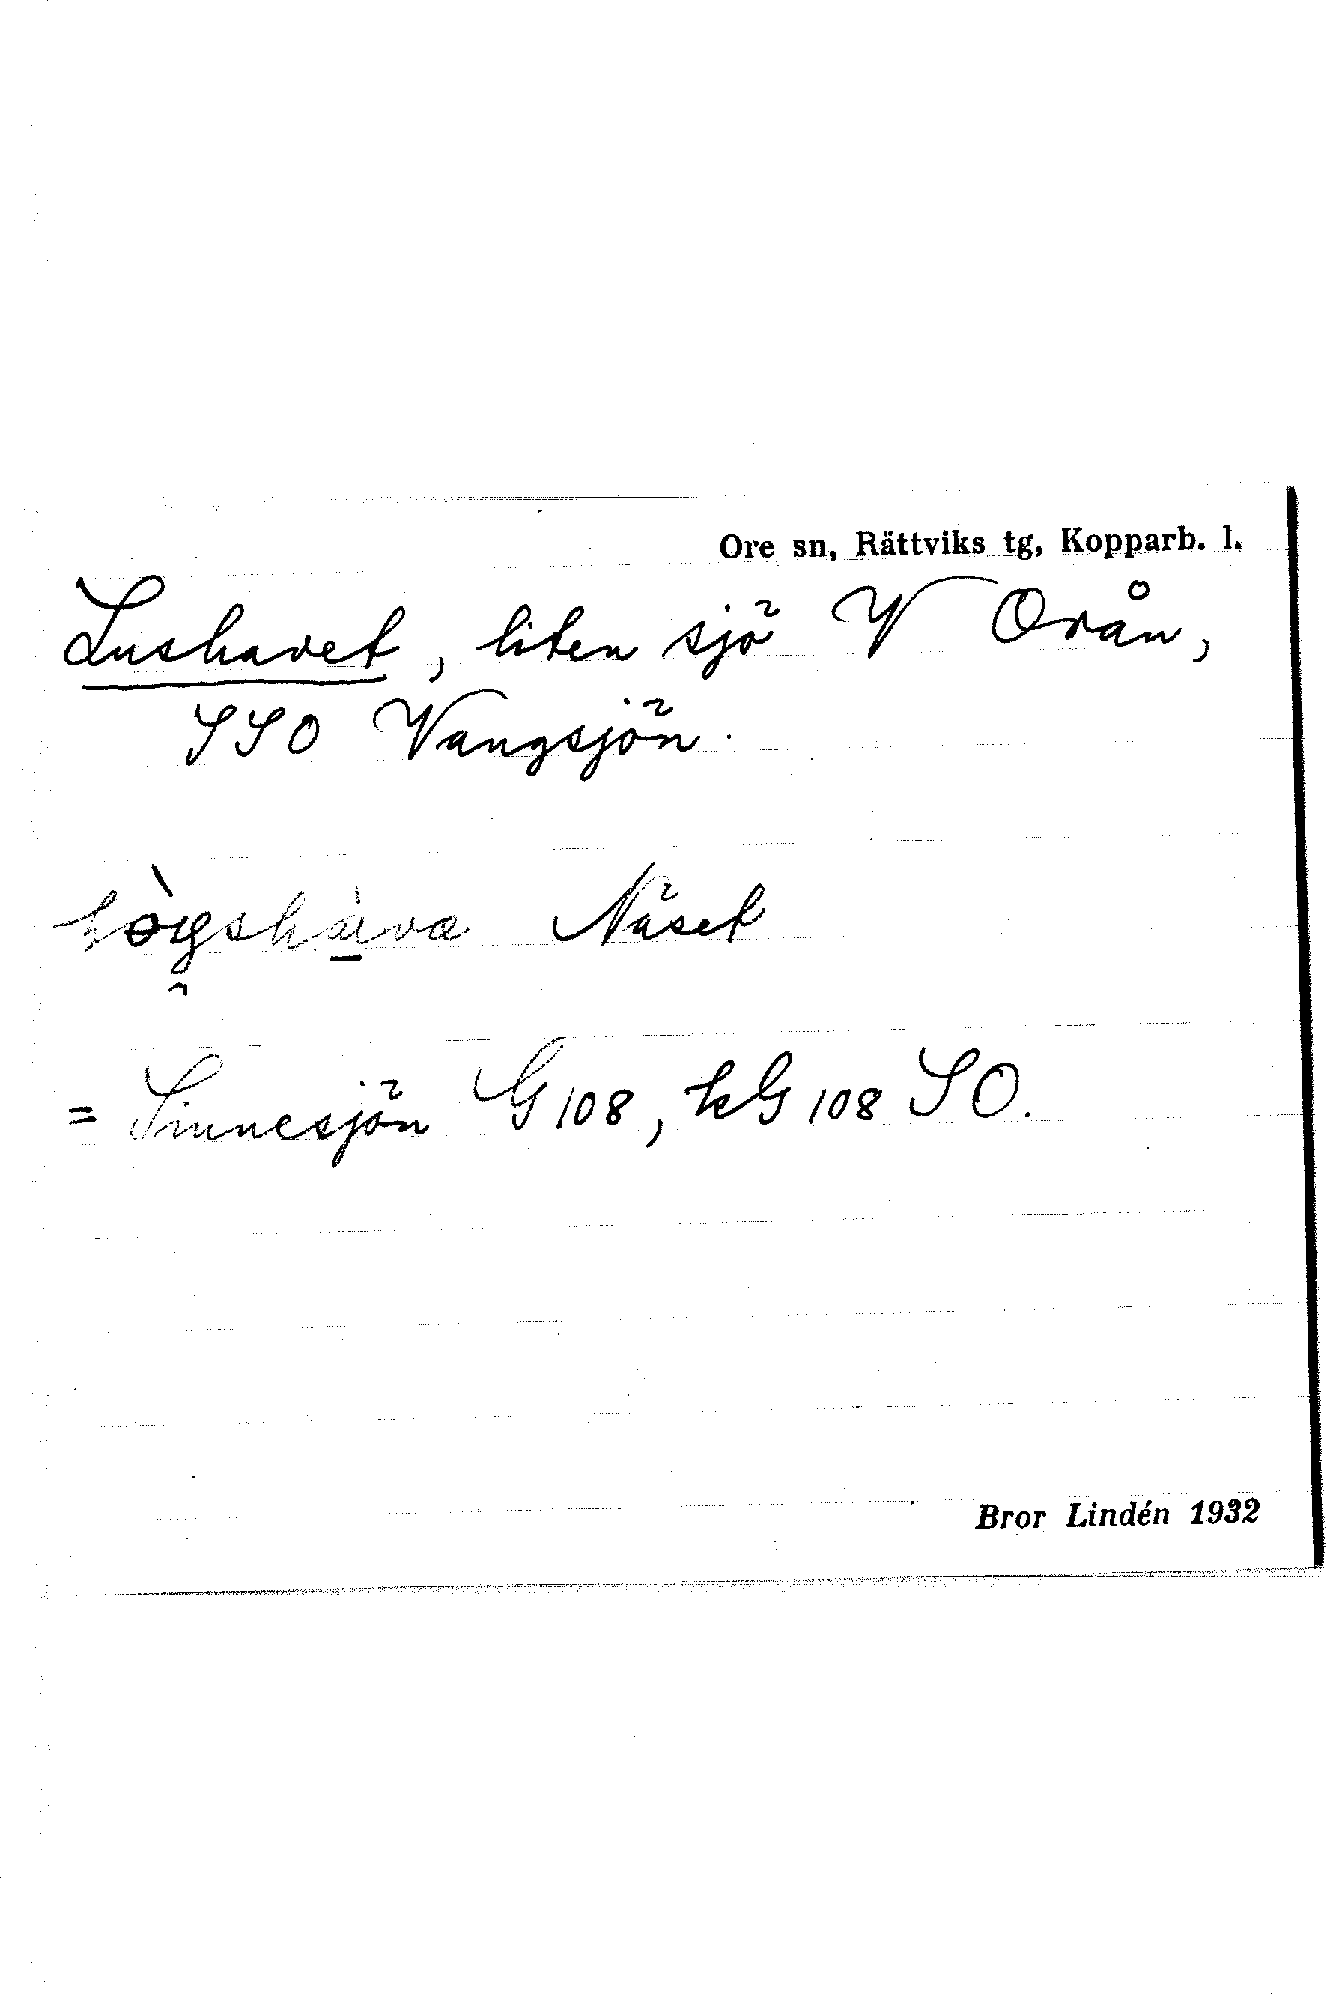 Ore sn, Rättviks tg, Kopparb. l.
Lushavet, liten sjö V Orån,
SSO Vangsjön.
Näset
= Sinnesjön G 108, kG 108 SO.
Bror Lindén 1932